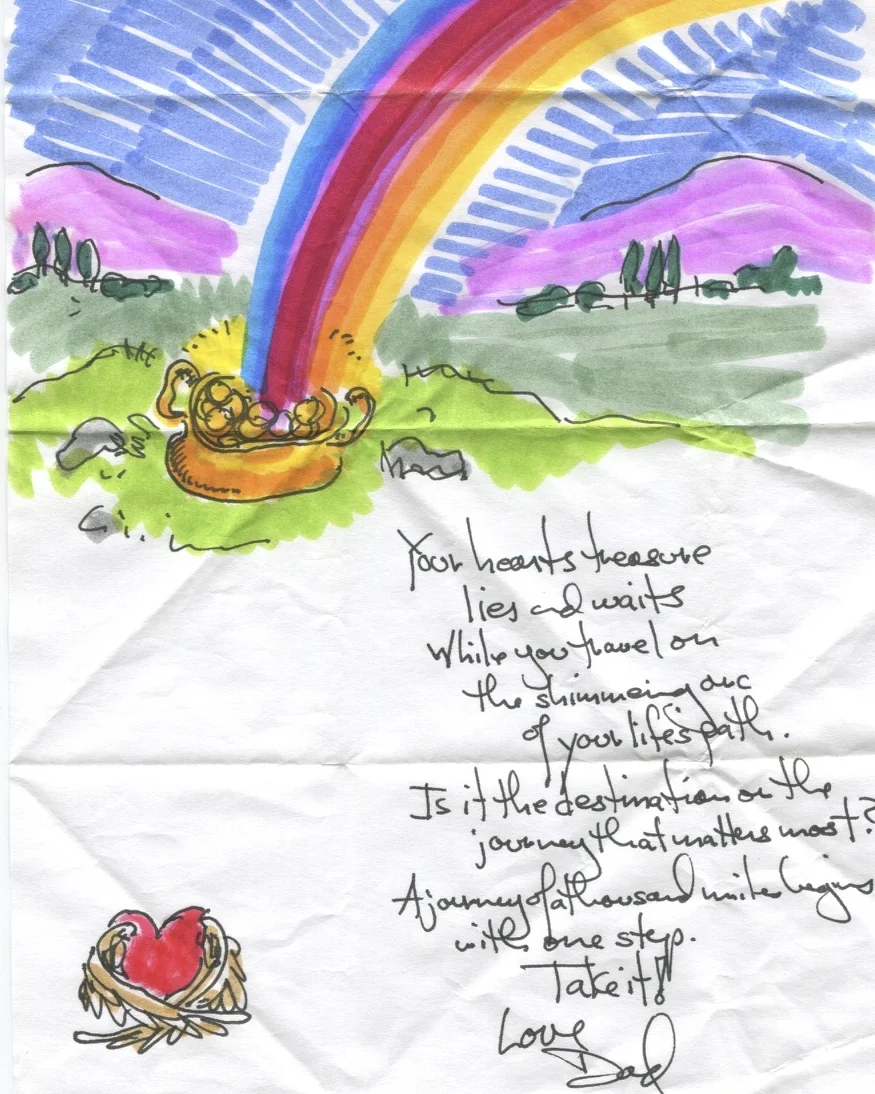 Your hearts treasure
lies and waits
While you travel on
the shimmering arc
of your life's path.
Is it the destination or the
journey that matters most?
A journey of a thousand miles begins
with one step.
Take it!
Love
Dad